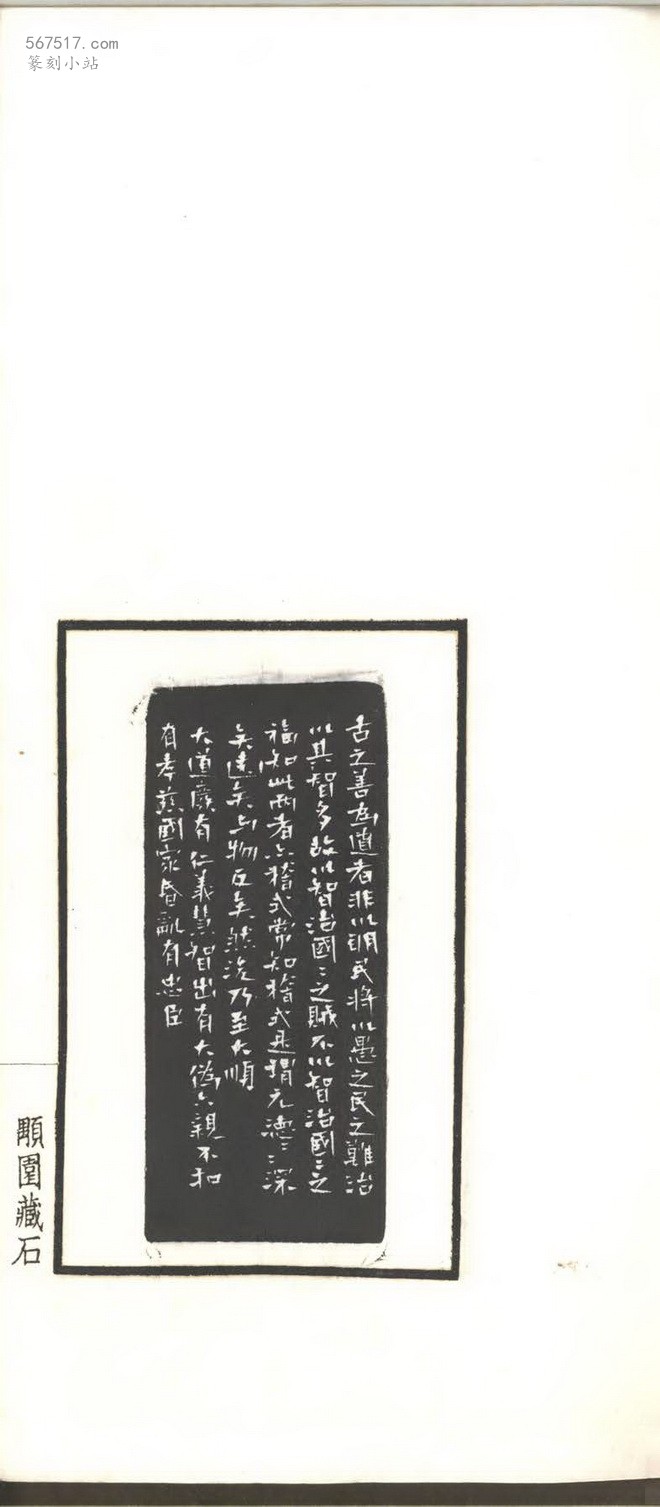 567517.com
篆刻小站
古之善為道者非以明民将以愚之民之難治
以其智多故以智治國〻之賊不以智治國〻之
福知此两者亦稽式常知稽式是謂元德〻〻深
矣遠矣与物反矣然後乃至大順
大道廢有仁義慧智出有大偽六親不和
有孝慈國家昏亂有忠臣
顒園藏石